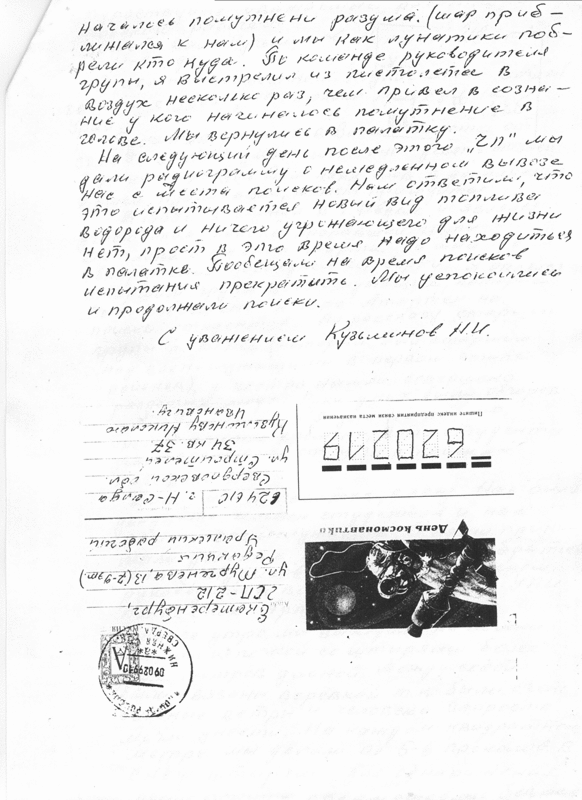 началось помутнени разума. (шар приб-
лижался к нам) и мы как лунатики поб-
рели кто куда. По команде руководителя
групы, я выстрелил из пистолета в
воздух несколько раз, чем привел в созна-
ние у кого начиналось помутнение в
голове. Мы вернулись в палатку.
На следующий день после этого „ЧП" мы
дали радиограмму о немедленном вывозе
нас с места поисков. Нам ответили, что
это испытывается новый вид топлива
водорода и ничего угрожающего для жизни
нет, прост в это время надо находиться
в палатке. Пообещали на время поисков
испытания прекратить. Мы успокоились
и продолжали поиски.
С уважением Кузьминов Н.И.
Пишите индекс предприятия связи места назначения
620219
624610 г. Н-Салда
Свердловской обл.
ул. Строителей
34 кв. 37
Кузьминову Николаю
Ивановичу.
День космонавтики
Екатеринбург,
ГСП-212
ул. Тургенева, 13 (7-9 эт)
Редакция
Уральский рабочий